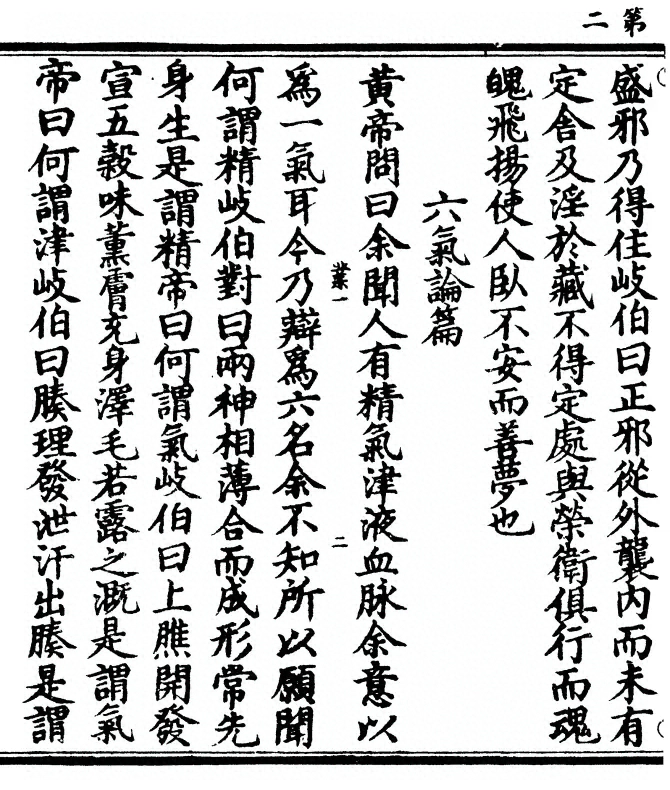 第二
盛邪乃得住岐伯曰正邪從外襲內而未有
定舍及淫於藏不得定處與榮衛俱行而魂
魄飛揚使人臥不安而善夢也
六氣論篇
黃帝問曰余聞人有精氣津液血脉余意以
業一
二
為一氣耳今乃辯為六名余不知所以願聞
何謂精岐伯對曰兩神相薄合而成形常先
身生是謂精帝曰何謂氣岐伯曰上膲開發
宣五穀味薰膚充身澤毛若霧露之溉是謂氣
帝曰何謂津岐伯曰腠理發泄汗出腠是謂